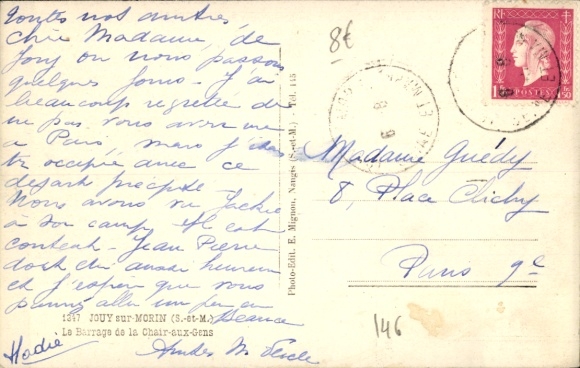 toutes nos amitiés,
chère Madame, de
Jouy où nous passons
quelques jours – J'ai
beaucoup regretté de
ne pas vous avoir vue
à Paris, mais j'étais
occupée avec ce
départ précipité –
Nous avons vu Jackie
à son camp, il est
content – Jean Pierre
doit être aussi heureux
et j'espère que vous
pourrez aller un peu en
1847 JOUY-sur-MORIN (S.-et-M.)
Le Barrage de la Chair-aux-Gens
Photo-Edit. E. Mignon, Nangis (S.-et-M.) - Tél. 115
8€
RF
1F
50
Madame Guédy
8, Place Clichy
Paris 9e
146